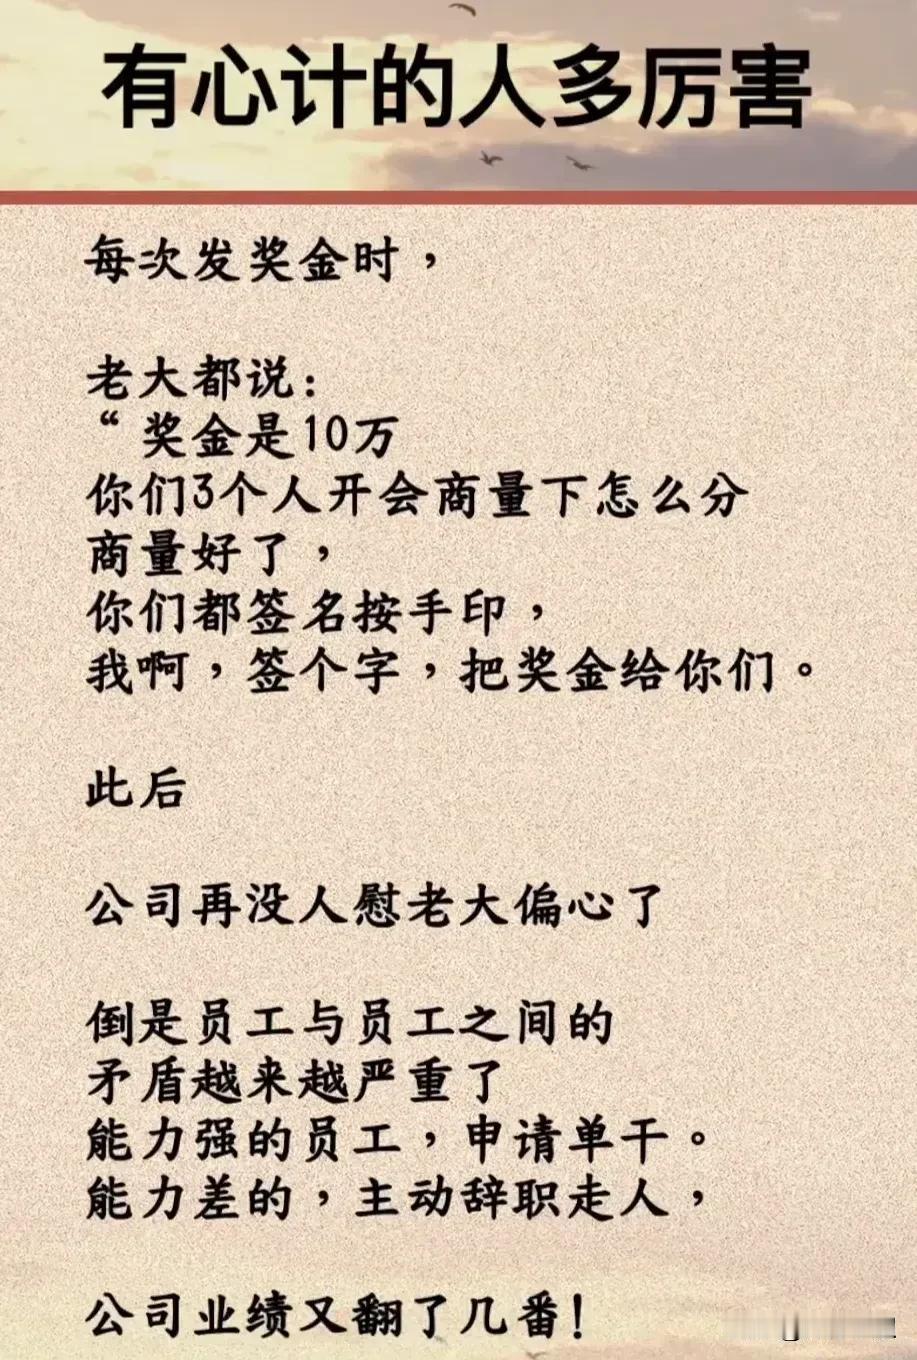 有心计的人多厉害
每次发奖金时，
老大都说：
“奖金是10万
你们3个人开会商量下怎么分
商量好了，
你们都签名按手印，
我啊，签个字，把奖金给你们。
此后
公司再没人慰老大偏心了
倒是员工与员工之间的
矛盾越来越严重了
能力强的员工，申请单干。
能力差的，主动辞职走人，
公司业绩又翻了几番！